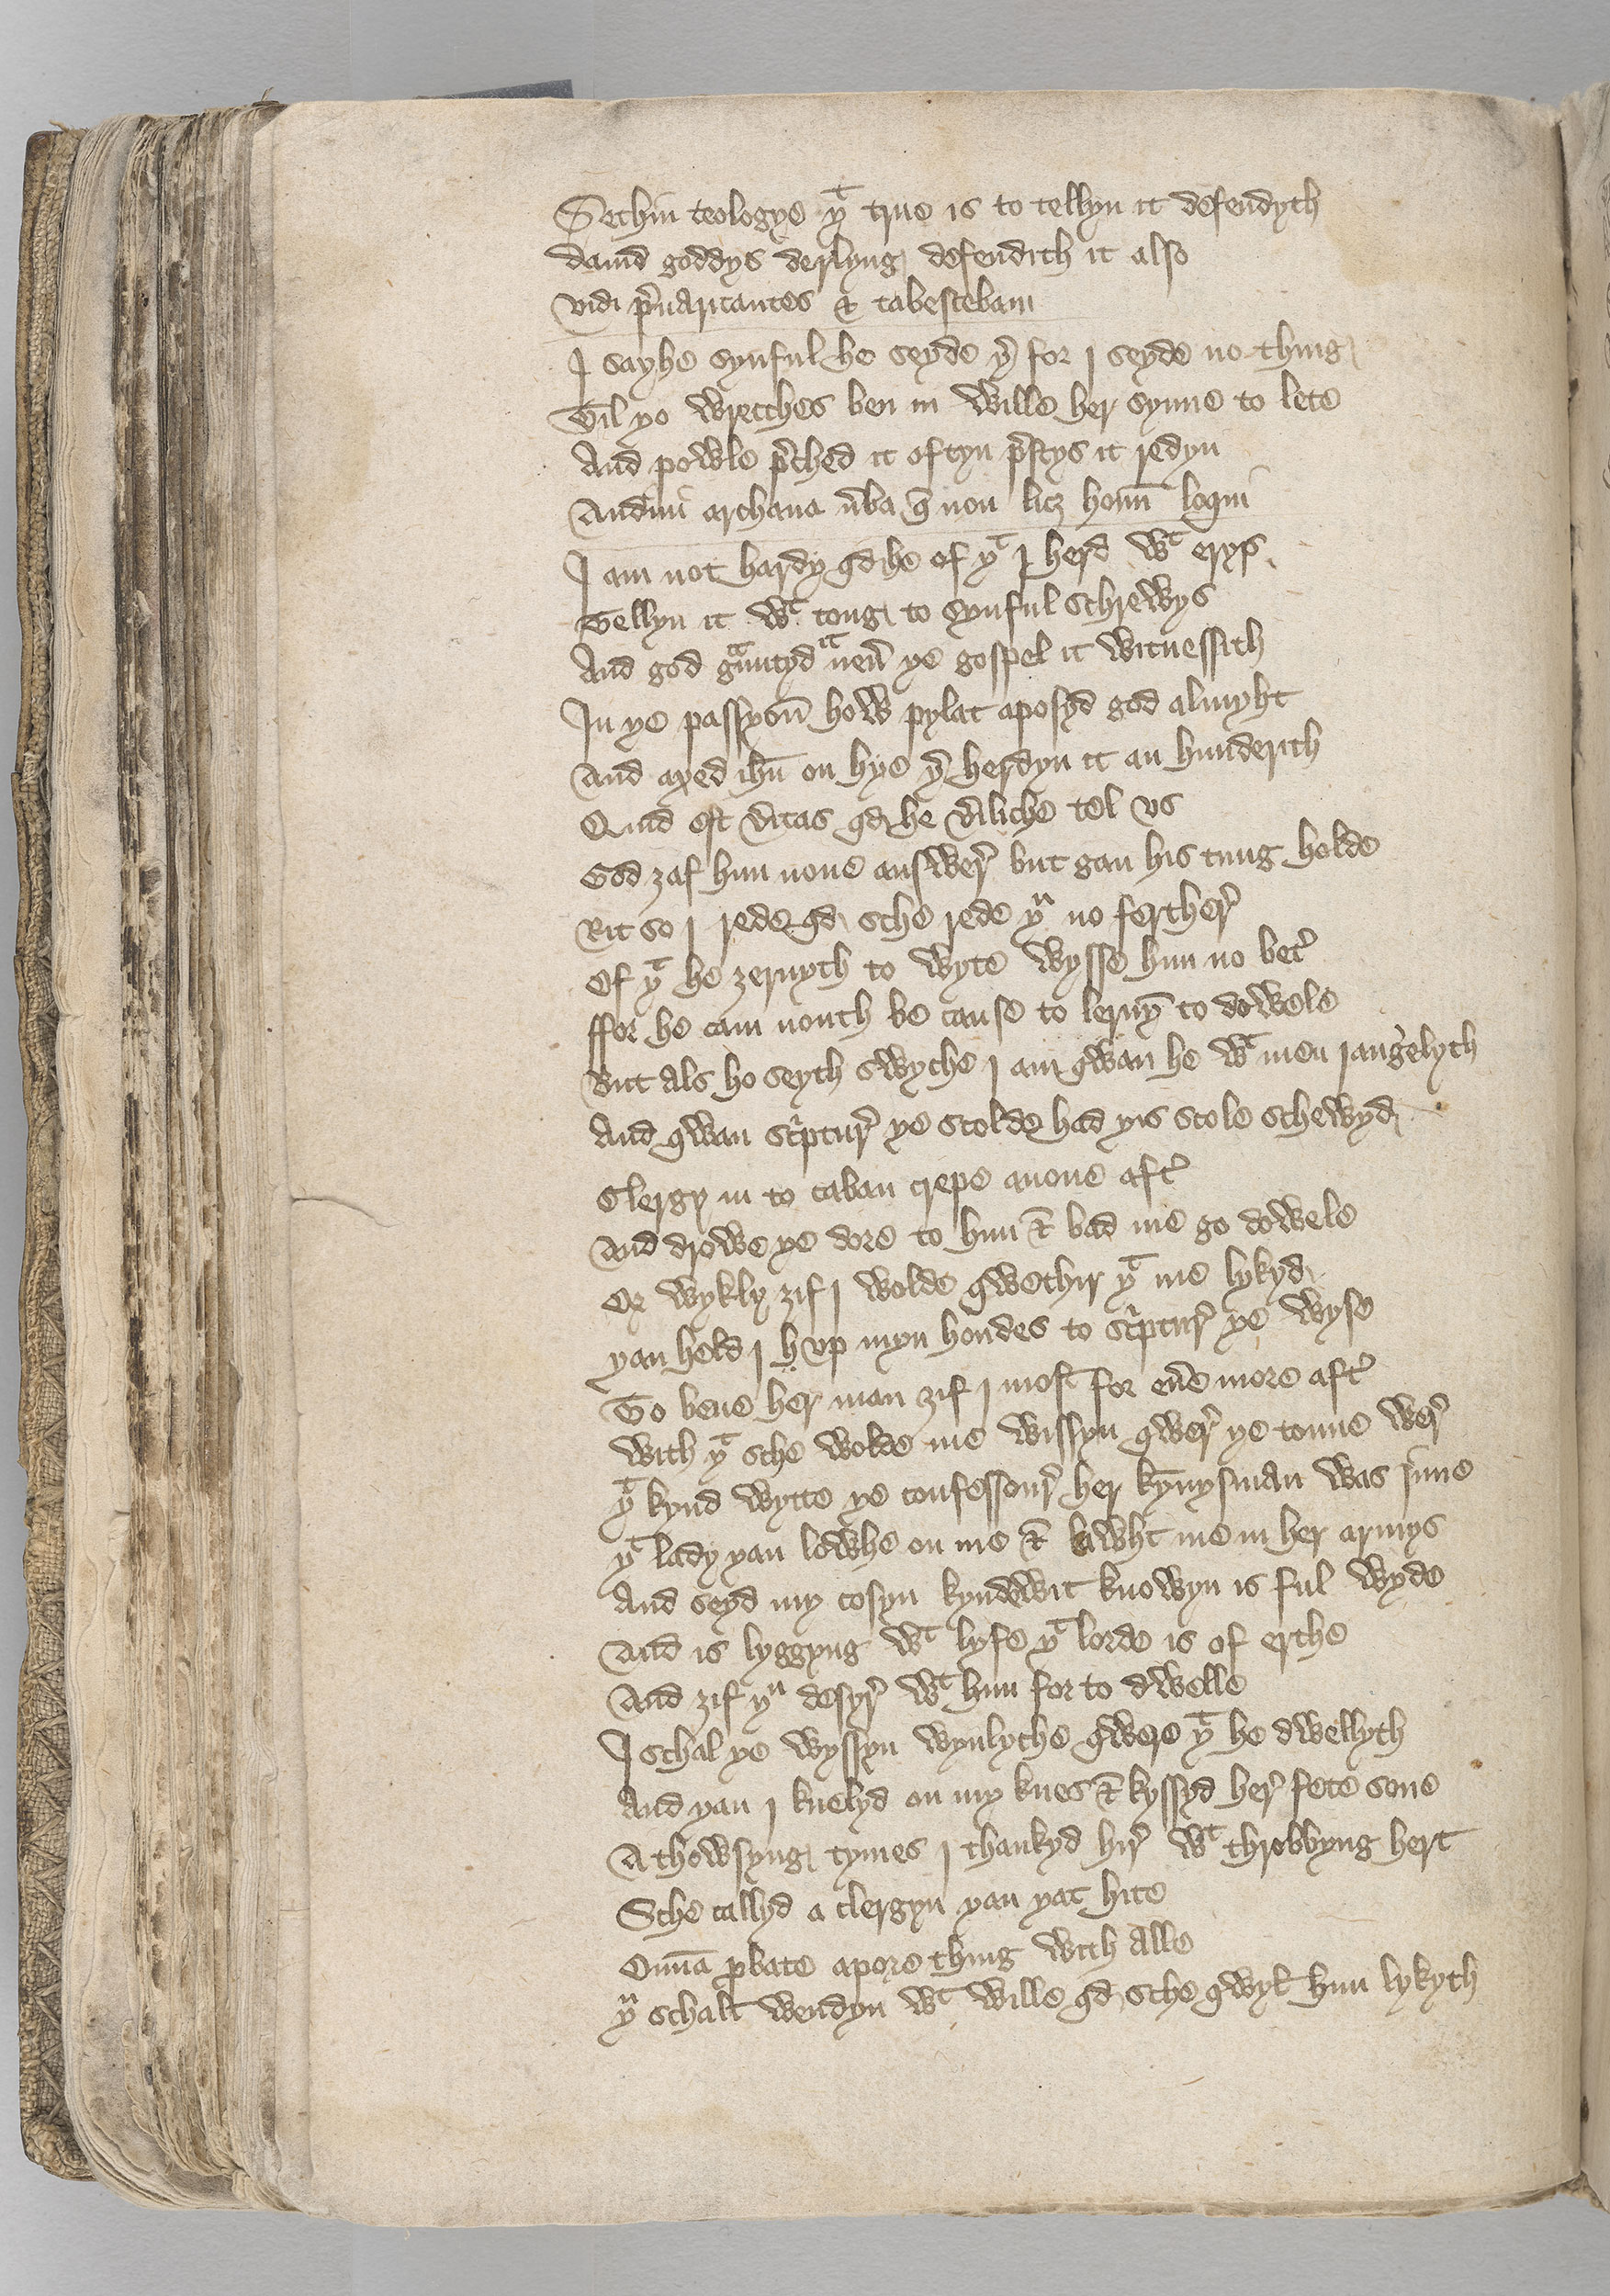 Sethin teologye yͭ true is to tellyn it defendyth
dauid goddys derlyng defendith it also
vidi p̄uaricantes & tabescebam
I sayhe synful he seyde yͤr for I seyde no thing
Til yo wretches ben in wille her synne to lete
And powle p̄ched it oftyn p̄stys it redyn
Audiui archana v̄ba q̄ non licꝫ hom̄ loqui
I am not hardy qd he of yͭ I herd wͭ erys
Tellyn it wͭ tong to synful schrewys
And god gᵃuntyd it neū ye gospel it witnessith
In ye passyon̄ how pylat aposyd god almyht
And axed ih̄u on hye yͭ herdyn it an hunderith
Quid est v̄itas qd he v̄iliche tel vs
God ȝaf him none answer̄ but gan his tung holde
Rit so I rede qd sche rede yͧ no ferther̄
Of yͭ he ȝernyth to wyte wysse him no bet̄
ffor he cam nouth be cause to lernyn̄ to dowele
But als ho seyth swyche I am qwan he wͭ men iangelyth
And qwan sc̄ptur̄ ye scolde had yis scole schewyd
Clergy in to caban crepe anone aft̄
And drowe ye dore to him & bad me go dowele
Or wykly ȝif I wolde qwethir yͭ me lykyd
yan held I h vp myn hondes to sc̄ptur̄ ye wyse
To bene her man ȝif I most for eūe more aft̄
With yͭ sche wolde me wissyn qwer̄ ye tonne wer̄
yͭ kynd wytte ye confessour̄ her kynnysman was inne
yͭ lady yan lowhe on me & lawht me in her armys
And seyd my cosyn kyndewit knowyn is ful wyde
And is lyggyng wͭ lyfe yͭ lorde is of erthe
And ȝif yͧ desyr̄ wͭ him for to dwelle
I schal ye wyssyn wynlyche qwere yͭ he dwellyth
And yan I knelyd on my knes & kyssyd her̄ fete sone
A thowsyng tymes I thankyd hir̄ wͭ throbbyng hert
Sche callyd a clergyn yan yat hite
Omn̄a ꝓbate a pore thing with alle
yͧ schalt wendyn wͭ wille qd sche qwyl him lykyth